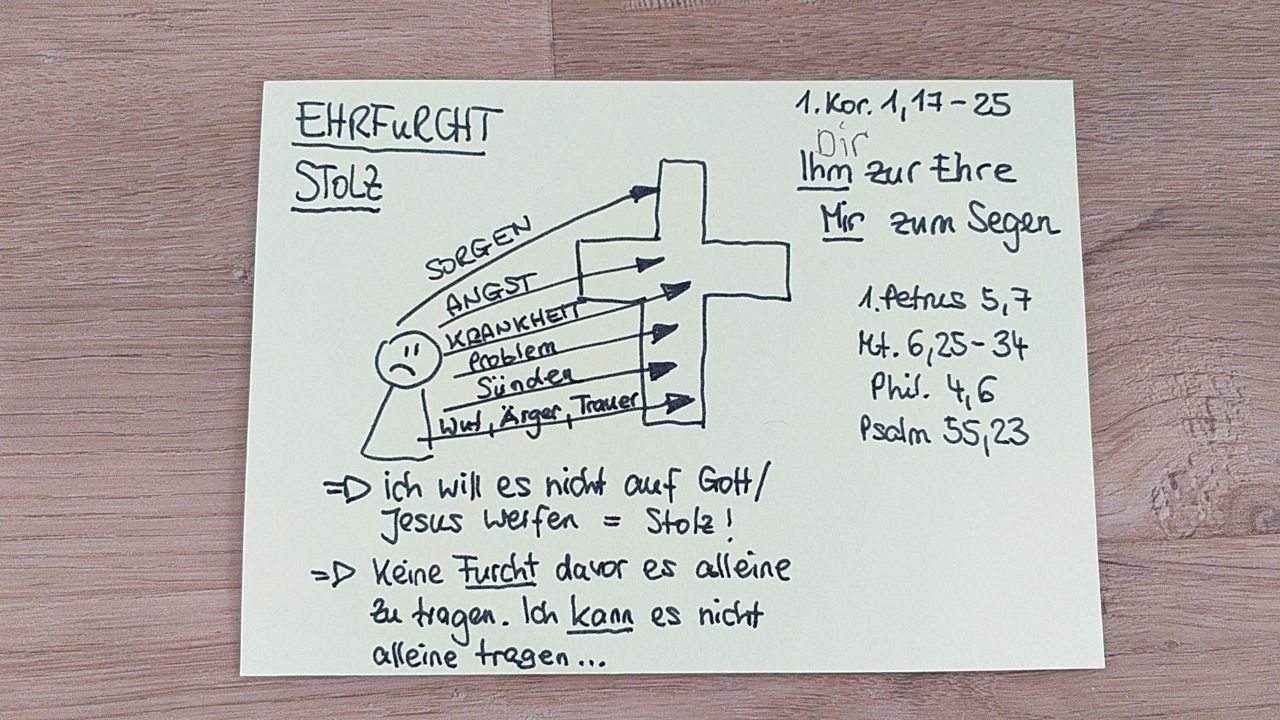 EHRFuRCHT
STOLZ
1. Kor. 1,17-25
Dir
Ihm zur Ehre
Mir zum Segen
SORGEN
ANGST
KRANKHEIT
Problem
Sünden
Wut, Ärger, Trauer
1. Petrus 5,7
Mt. 6,25-34
Phil. 4,6
Psalm 55,23
=> ich will es nicht auf Gott/
Jesus werfen = Stolz!
=> Keine Furcht davor es alleine
zu tragen. Ich kann es nicht
alleine tragen...